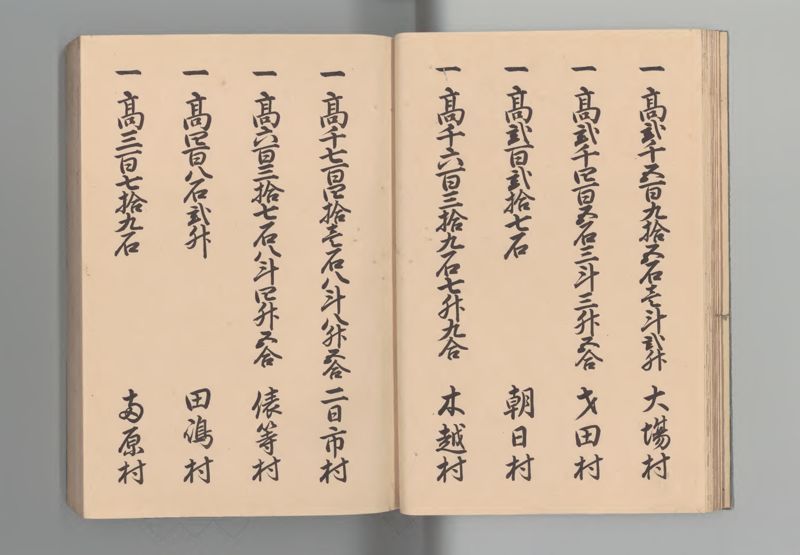 一髙弐千五百九拾五石壱斗弐升 大場村
一髙弐千四百五石三斗三升五合 才田村
一髙弐百弐拾七石 朝日村
一髙千六百三拾九石七升九合 木越村
一髙千七百四拾壱石八斗八升五合 二日市村
一髙六百三拾七石八斗四升五合 俵等村
一髙四百八石弐升 田嶋村
一髙三百七拾九石 南原村